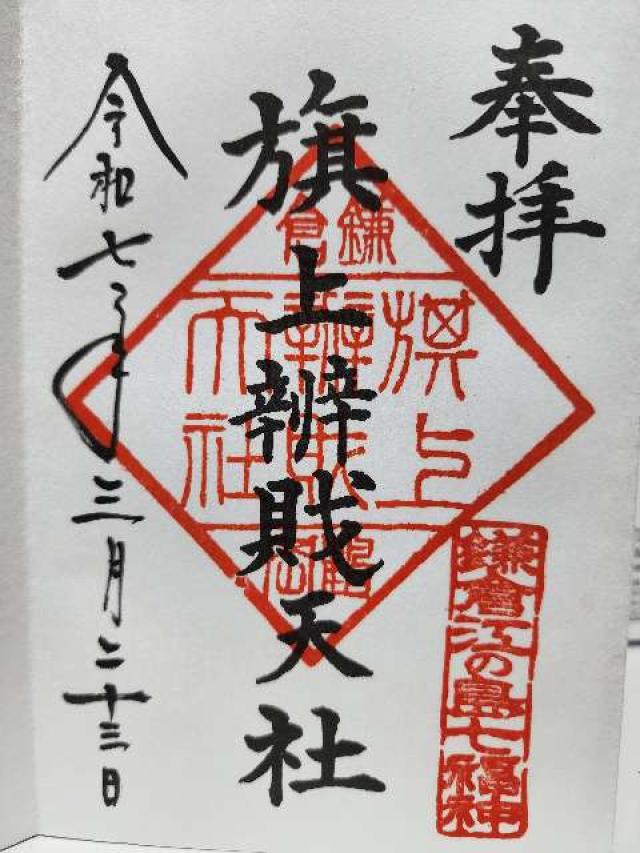 奉拝
旗上辨財天社
令和七年三月二十三日
鎌倉
旗上
辨財
天社
鎌倉江の島七福神